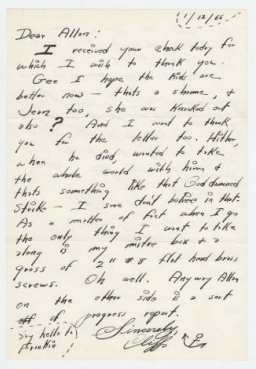 (1/12/66
Dear Allan:
I received your check today for
which I wish to thank you.
Gee I hope the kids are
better now — thats a shame, &
Jean too, she was knocked out
also? And I want to thank
you for the letter too. Hitler,
when he died, wanted to take
the whole world with him &
thats something like that God damned
Strike — I sure don't believe in that.
As a matter of fact when I go
the only thing I want to take
along is my mitre box & 2
gross of 2" #8 flat head brass
screws. Oh well. Anyway Allan
on the other side is a sort
off of progress report.
Say hello to
Frankie!
Sincerely,
Cliff